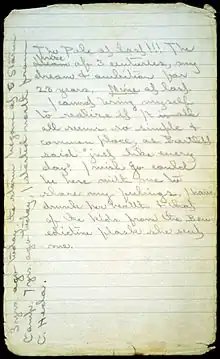 The Pole at last!!! The
prize
dream of 3 centuries, my
dream & ambition for
23 years. Mine at last.
I cannot bring myself
to realize it. It
all seems so simple &
common place, as Bartlett
said "just like every
day". I wish Jo could
be here with me to
share my feelings. I have
drunk her health & that
of the kids from the Ben-
edictine flask she sent
me.
3 yrs. ago today
Camp. 7 yrs ago today I started north from
C. Hecla.